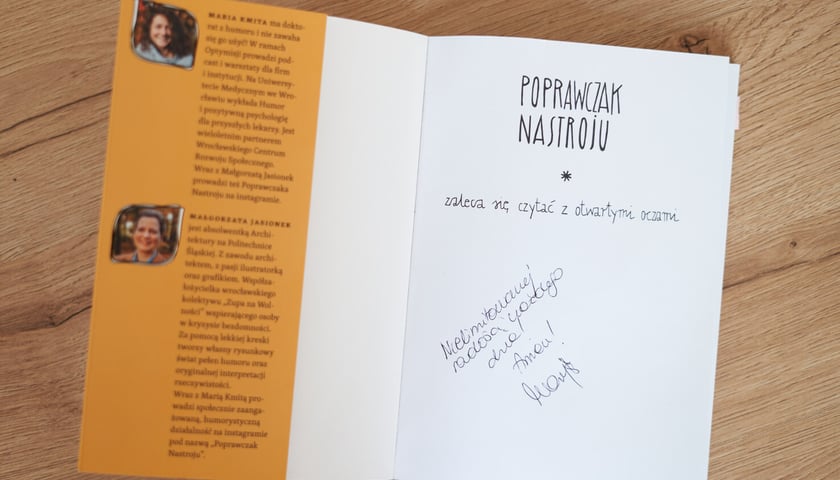 MARIA KMITA ma dokto-
rat z humoru i nie zawaha
się go użyć! W ramach
Optymisji prowadzi pod-
cast i warsztaty dla firm
i instytucji. Na Uniwersy-
tecie Medycznym we Wro-
cławiu wykłada Humor
i pozytywną psychologię
dla przyszłych lekarzy. Jest
wieloletnim partnerem
Wrocławskiego Centrum
Rozwoju Społecznego.
Wraz z Małgorzatą Jasionek
prowadzi też Poprawczaka
Nastroju na instagramie.
MAŁGORZATA JASIONEK
jest absolwentką Archi-
tektury na Politechnice
Śląskiej. Z zawodu archi-
tektem, z pasji ilustratorką
oraz grafikiem. Współza-
łożycielka wrocławskiego
kolektywu „Zupa na Wol-
ności" wspierającego osoby
w kryzysie bezdomności.
Za pomocą lekkiej kreski
tworzy własny rysunkowy
świat pełen humoru oraz
oryginalnej interpretacji
rzeczywistości.
Wraz z Marią Kmitą pro-
wadzi społecznie zaanga-
żowaną, humorystyczną
działalność na instagramie
pod nazwą „Poprawczak
Nastroju".
POPRAWCZAK
NASTROJU
*
zaleca się czytać z otwartymi oczami
Nielimitowanej
radości każdego
dnia!